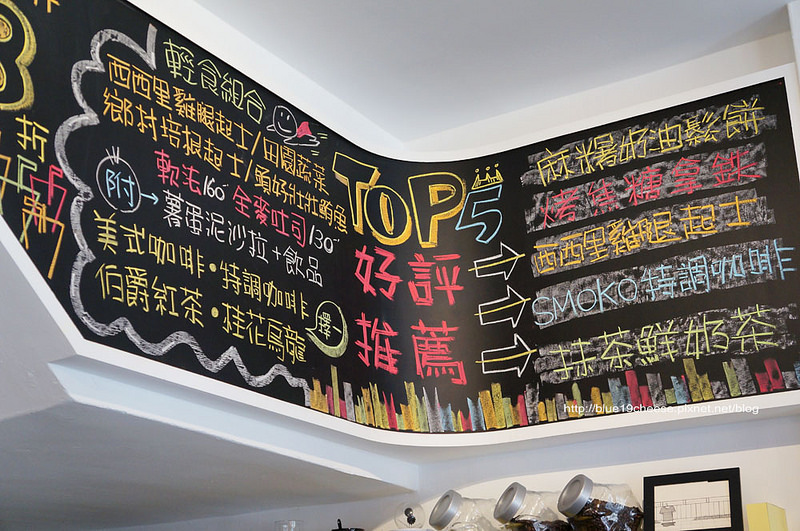 折
輕食組合
西西里雞腿起士/田園蔬菜
鄉村培根起士/鮪好壯壯鮪魚
軟法160 全麥吐司130
附→薯蛋泥沙拉+飲品
美式咖啡・特調咖啡
伯爵紅茶・桂花烏龍 擇一
TOP5
好評
推薦
麻糬奶油鬆餅
烤焦糖拿鐵
西西里雞腿起士
SMOKO特調咖啡
抹茶鮮奶茶
http://blue19cheese.pixnet.net/blog